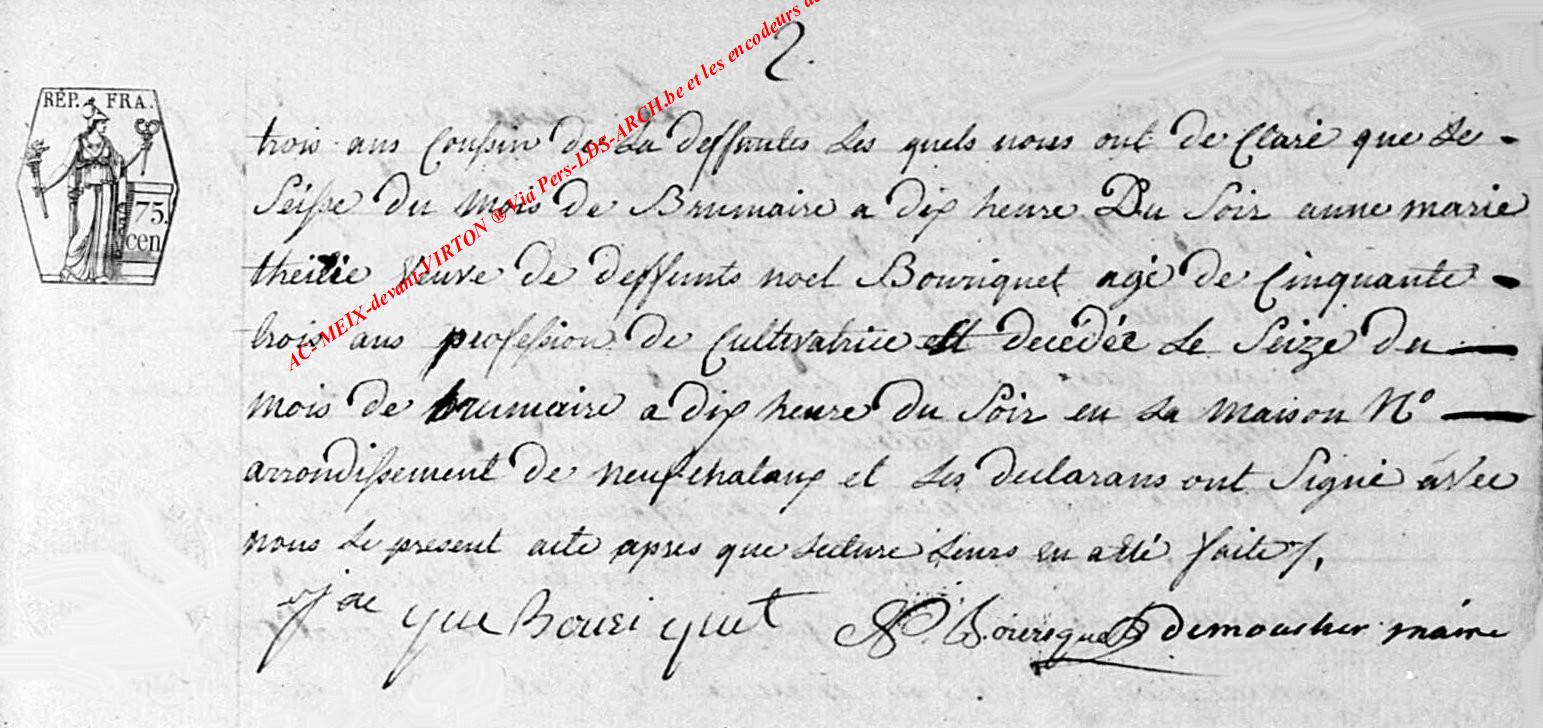 2.
RÉP. FRA.
75.
cen
AC-MEIX-devant-VIRTON ® Via Pers-LDS-ARCH.be et les encodeurs
trois ans Cousin de La deffuntes Les quels nous ont de Claré que Le -
Seisse du Mois de Brumaire a dix heure Du Soir anne marie
Veuve de deffunts noel Bouriquet agé de Cinquante -
trois ans profession de Cultivatrice est decédée Le Seize du
mois de brumaire a dix heure du Soir en La maison N°
arrondissement de neufchataux et Les declarans ont Signé avec
nous Le present acte apres que Lecture Leurs en a été faite /.
jac que Bouri quet N. Bouriquet demousher maire